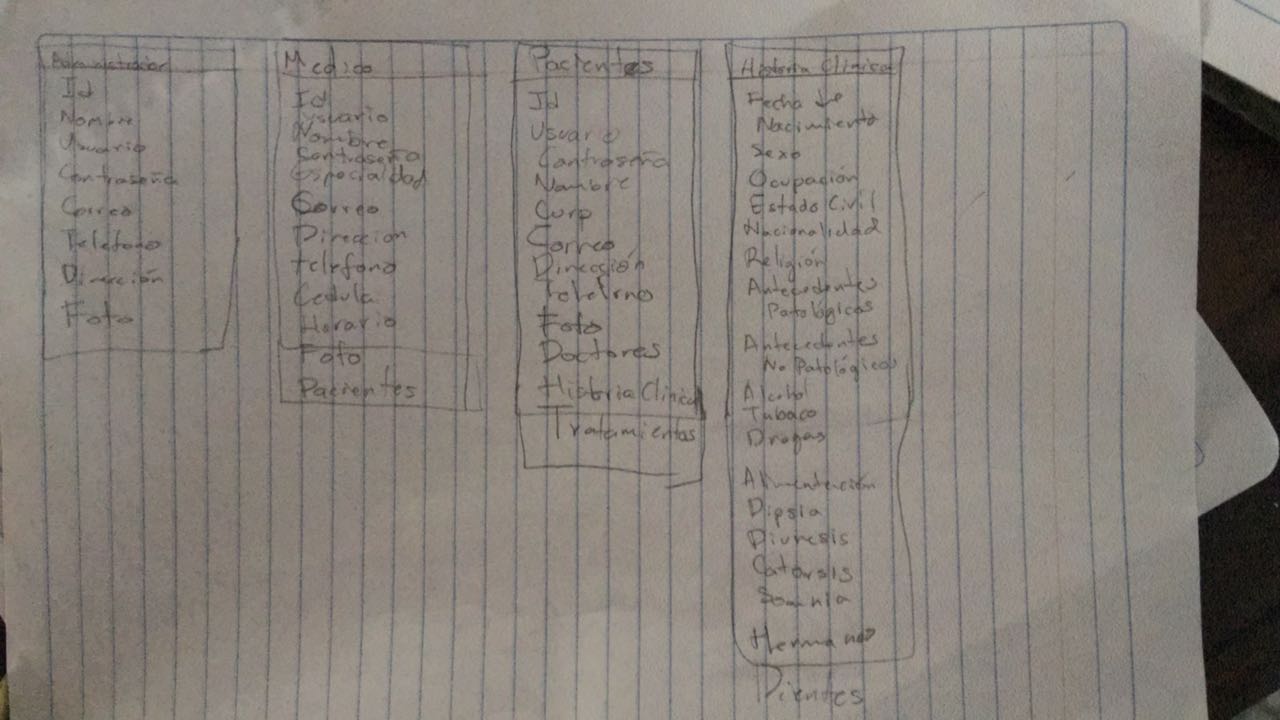 Administrador
Id
Nombre
Usuario
Contraseña
Correo
Telefono
Dirección
Foto
Medico
Id
Usuario
Nombre
Contraseña
Especialidad
Correo
Direccion
telefono
Cedula
Horario
Foto
Pacientes
Pacientes
Id
Usuario
Contraseña
Nombre
Curp
Correo
Dirección
Telefono
Foto
Doctores
Historia Clinica
Tratamientos
Historia Clinica
Fecha de
Nacimiento
Sexo
Ocupación
Estado Civil
Nacionalidad
Religión
Antecedentes
Patológicos
Antecedentes
No Patológicos
Alcohol
Tabaco
Drogas
Alimentación
Dipsia
Diuresis
Catarsis
Somnia
Hermanos
Dientes